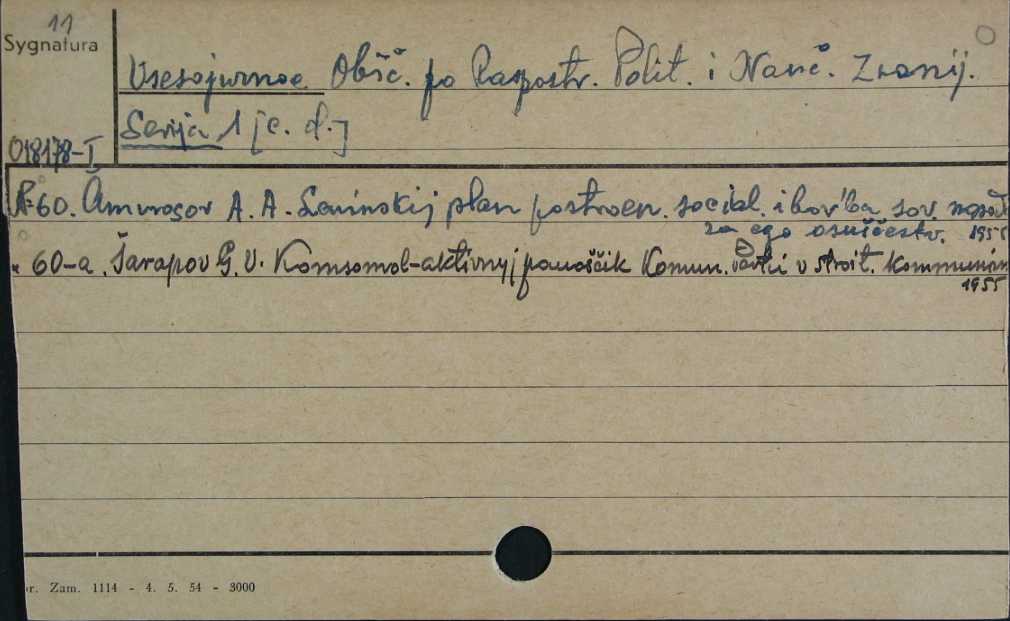 11
Sygnatura
Vsesojuznoe Obšč. po Raspostr. Polit. i Nauč. Znanij.
Serija 1 [c. d.]
018178-I
R-60. Amvrosov A. A. Leninskij plan postroen. social. i bor'ba sov. naroda
za ego osuščestv. 1955
" 60-a. Šarapov G. V. Komsomol-aktivnyj pomoščik Komun. Partii v stroit. kommunizm
1955
r. Zam. 1114 - 4. 5. 54 - 3000